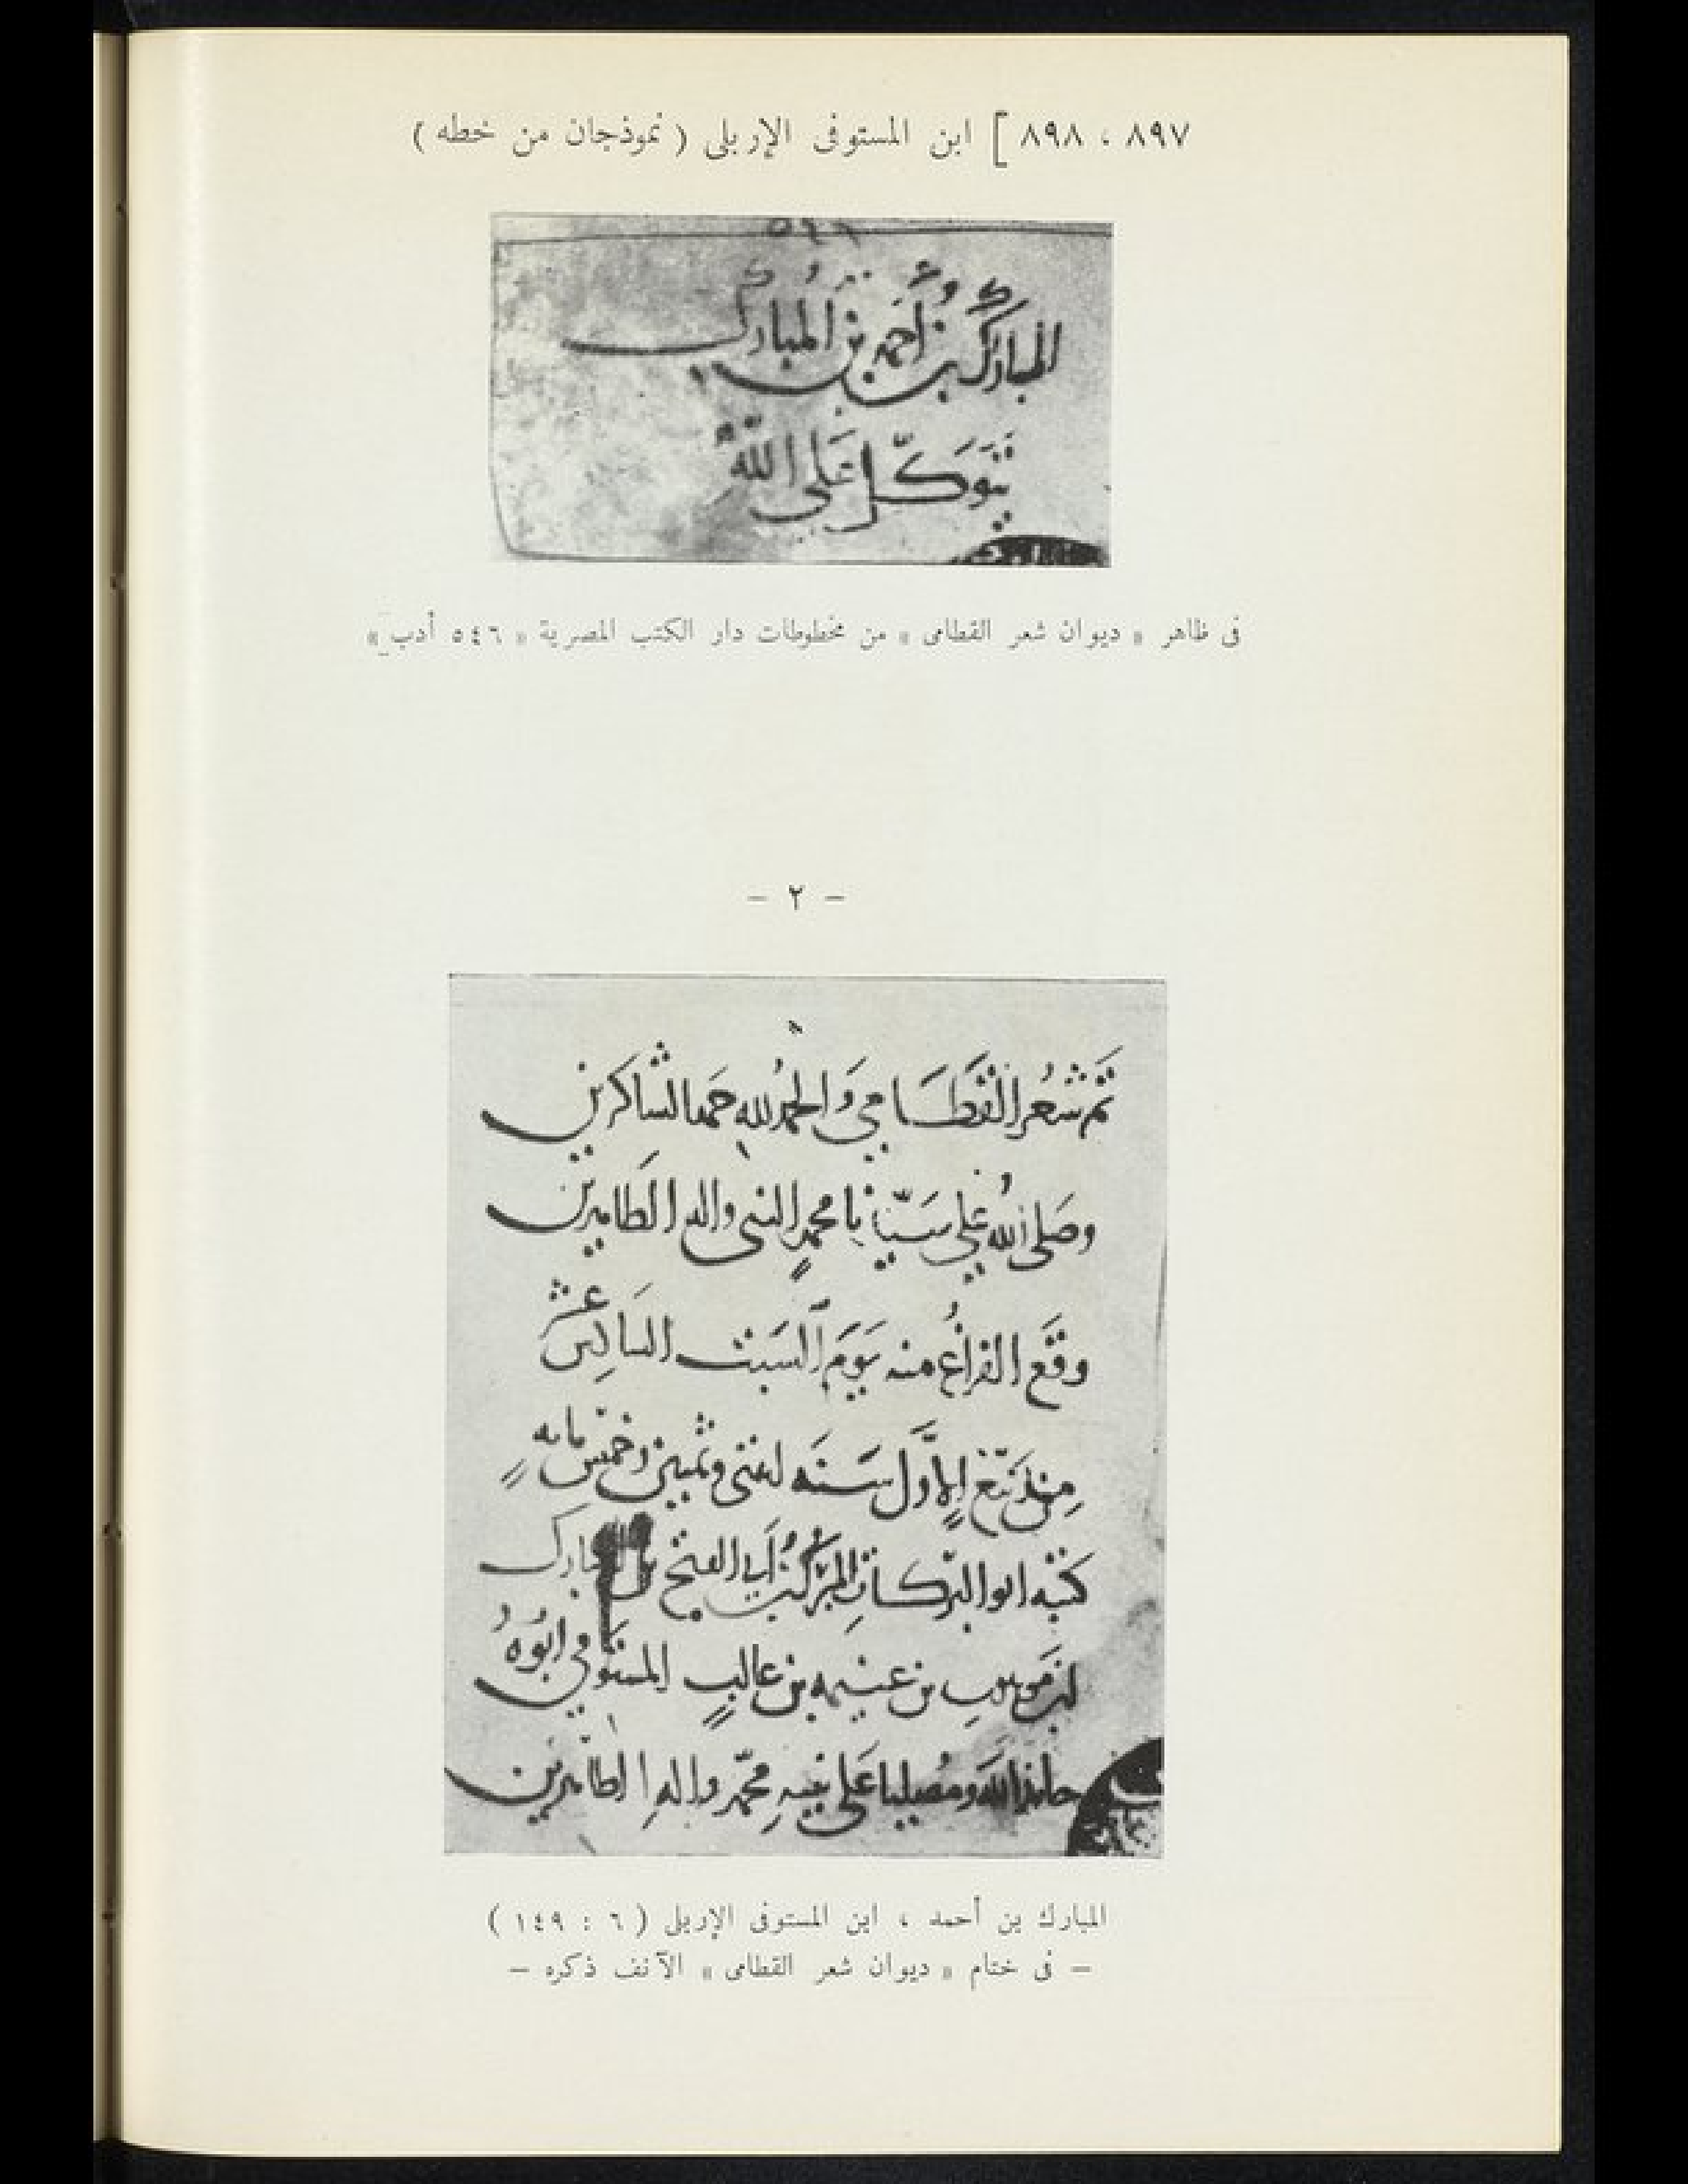 ٨٩٧ ، ٨٩٨ ] ابن المستوفى الإربلى ( نموذجان من خطه )
٥٤٦
المبارك بن أحمد بن المبارك
يتوكل على الله
فى ظاهر « ديوان شعر القطامى » من مخطوطات دار الكتب المصرية « ٥٤٦ أدب »
– ٢ –
تم شعر القطامي والحمد لله حمد الشاكرين
وصلى الله على سيدنا محمد النبي واله الطاهرين
وقع الفراغ منه يوم السبت السادس عشر
من ربيع الاول سنه وثمنين وخمس مايه
كتبه ابو البركات المبرك بن ابي الفتح بن المبارك
بن موهوب بن غنيمه بن غالب المستوفي ابوه
حامدا لله ومصليا على نبيه محمد واله الطاهرين
المبارك بن أحمد ، ابن المستوفى الإربلى ( ٦ : ١٤٩ )
– فى ختام « ديوان شعر القطامى » الآنف ذكره –